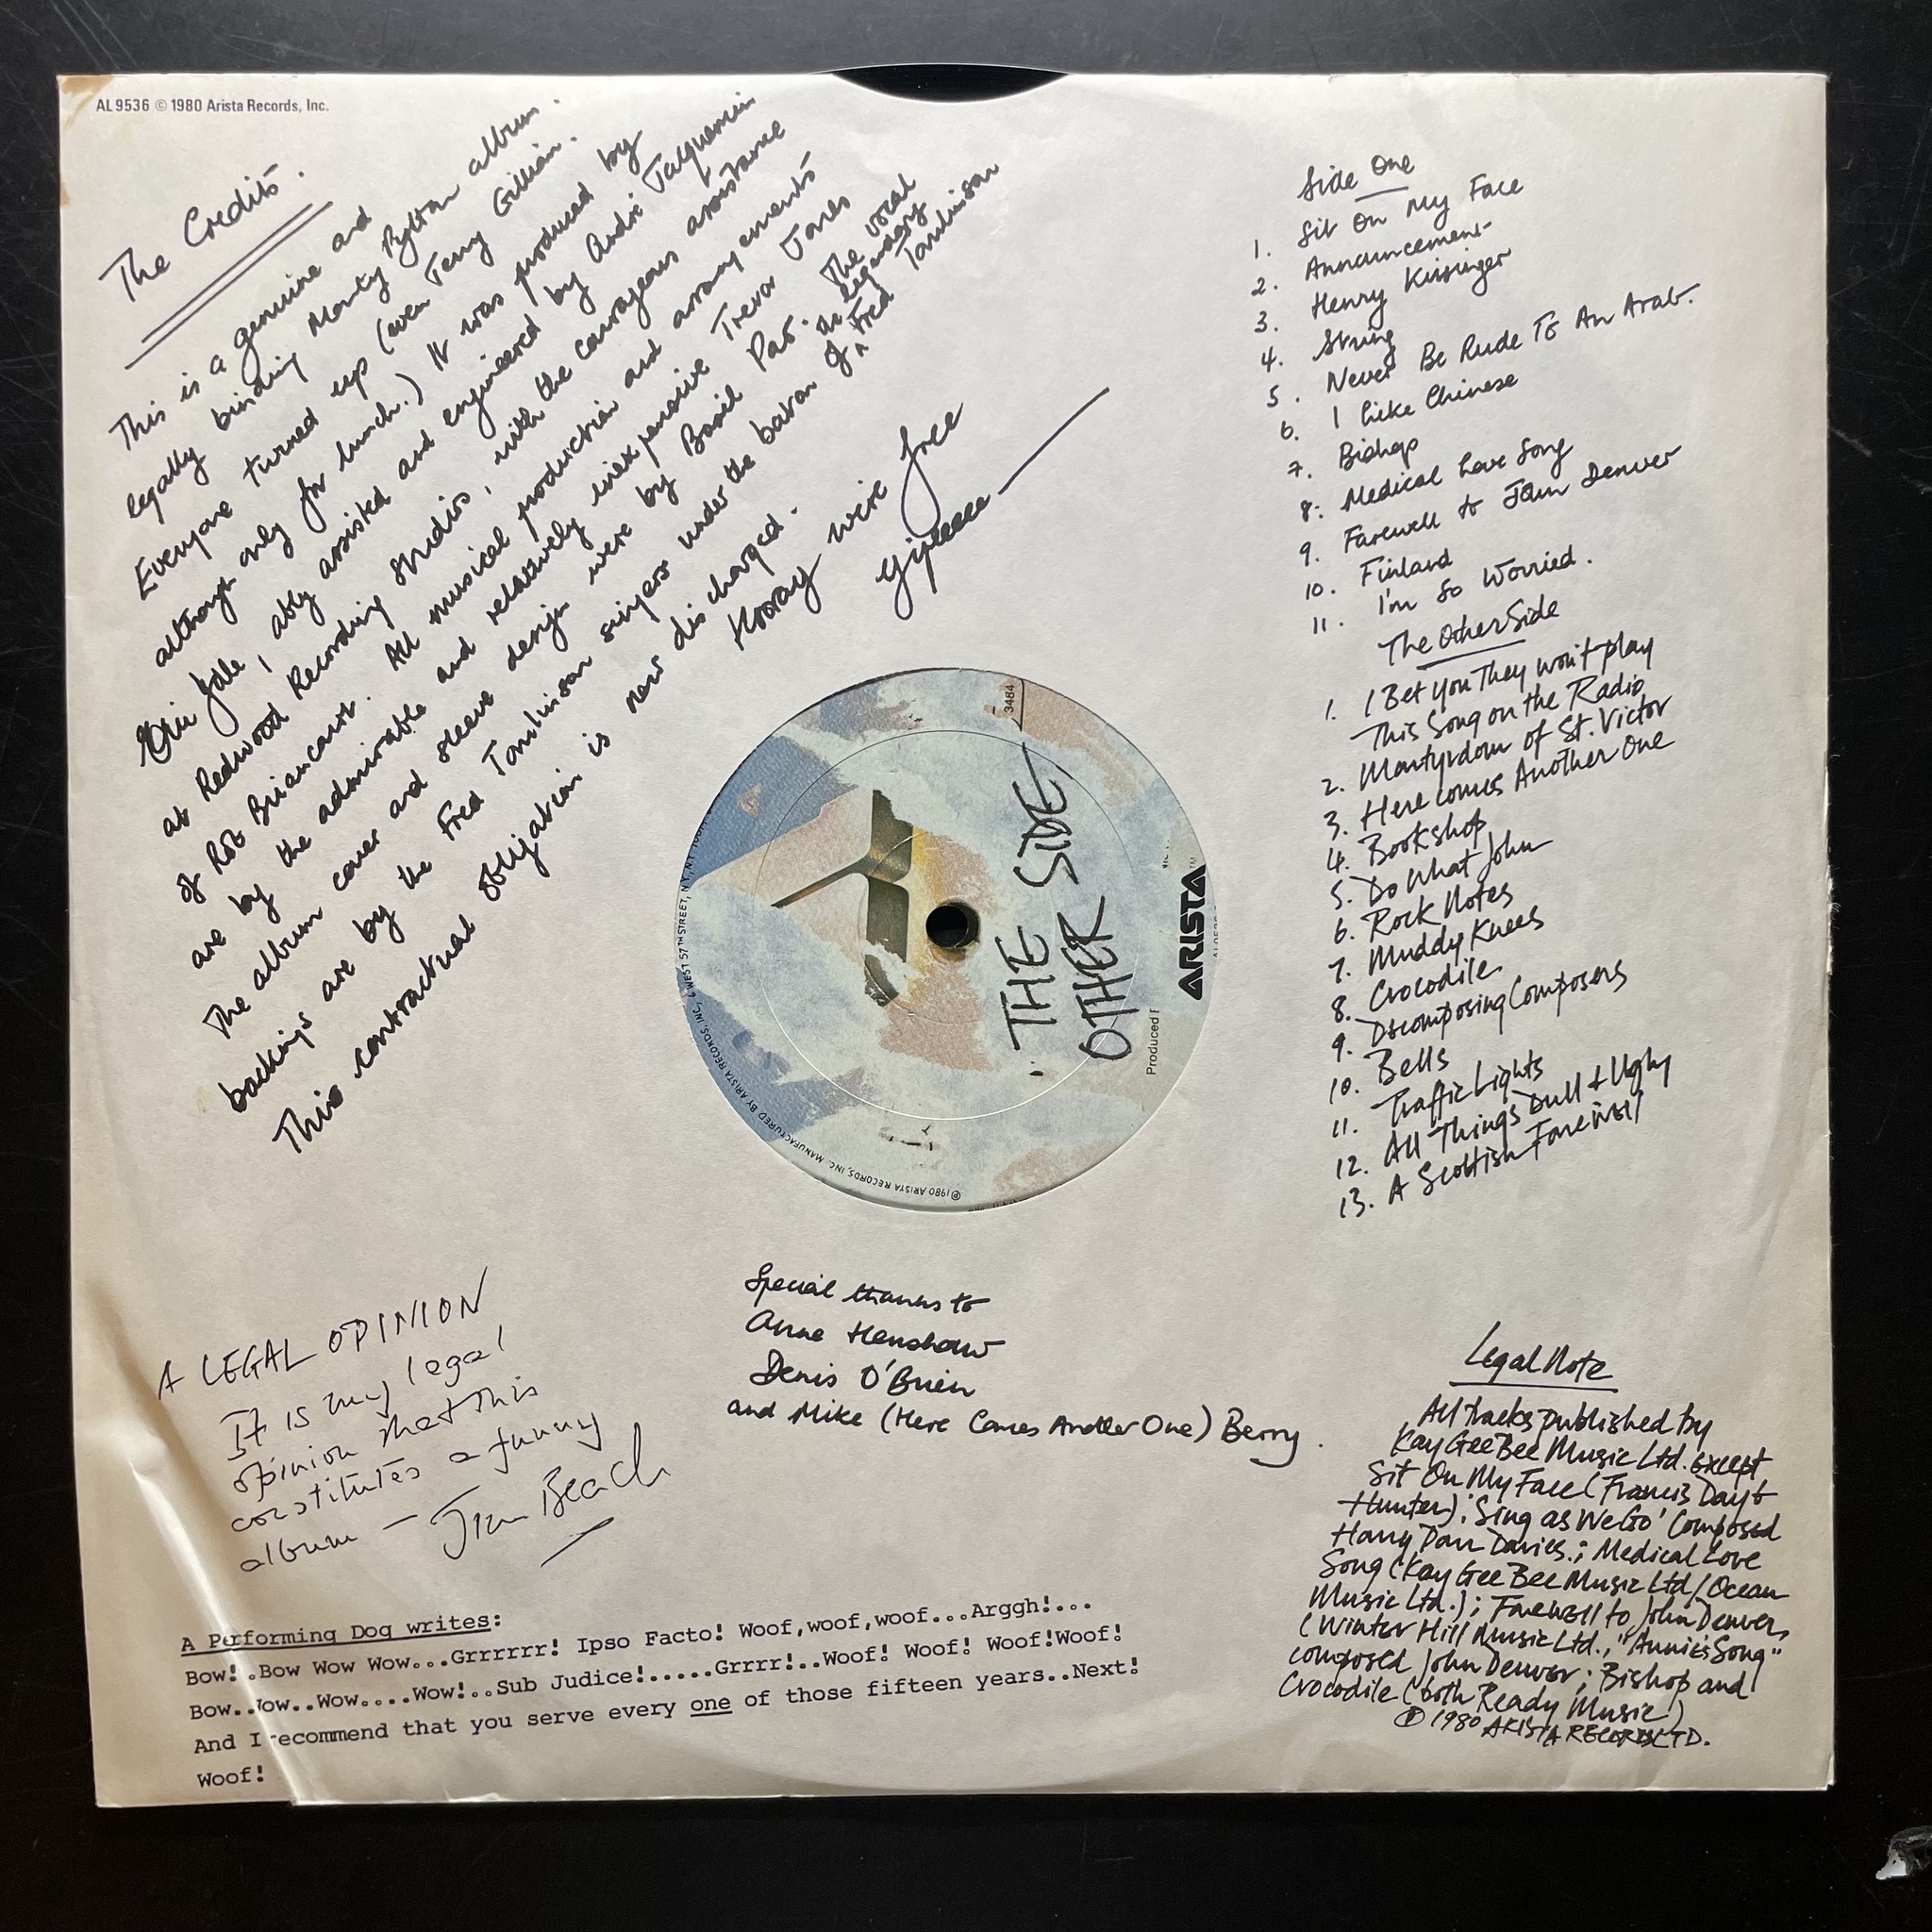 AL 9536 © 1980 Arista Records, Inc.
The Credits.
This is a genuine and
legally binding Monty Python album.
Everyone turned up (even Terry Gilliam.
although only for lunch.) It was produced by
Eric Idle, ably assisted and engineered by André Jacquemin
at Redwood Recording Studios, with the courageous assistance
of Rob Briancourt. All musical production and arrangements
are by the admirable and relatively inexpensive Trevor Jones
The album cover and sleeve design were by Basil Pao. The vocal
backings are by the Fred Tomlinson singers under the baton of the legendary Fred Tomlinson
This contractual obligation is now discharged.
Hooray we're free
Yipeeeee
Side One
1. Sit On My Face
2. Announcement
3. Henry Kissinger
4. String
5. Never Be Rude To An Arab.
6. I Like Chinese
7. Bishop
8. Medical Love Song
9. Farewell to John Denver
10. Finland
11. I'm So Worried.
The Other Side
1. I Bet You They Won't play
This Song on the Radio
2. Martyrdom of St. Victor
3. Here comes Another One
4. Bookshop
5. Do What John
6. Rock Notes
7. Muddy Knees
8. Crocodile
9. Decomposing Composers
10. Bells
11. Traffic Lights
12. All Things Dull & Ugly
13. A Scottish Farewell
3484
THE
OTHER SIDE
ARISTA™
Produced
℗1980 ARISTA RECORDS, INC. MANUFACTURED BY ARISTA RECORDS, INC., 6 WEST 57TH STREET, N.Y., N.Y.
A LEGAL OPINION
It is my legal
opinion that this
constitutes a funny
album — Jim Beach
Special thanks to
Anne Henshaw
Denis O'Brien
and Mike (Here Comes Another One) Berry.
Legal Note
All tracks published by
Kay Gee Bee Music Ltd. except
Sit On My Face (Francis Day &
Hunter); 'Sing as We Go' Composed
Harry Parr Davies.; Medical Love
Song (Kay Gee Bee Music Ltd/Ocean
Music Ltd.); Farewell to John Denver,
(Winter Hill Music Ltd., "Annie's Song"
composed John Denver; Bishop and
Crocodile (both Ready Music)
℗ 1980 ARISTA RECORDS LTD.
A Performing Dog writes:
Bow!.Bow Wow Wow...Grrrrrr! Ipso Facto! Woof,woof,woof...Arggh!...
Bow..Wow..Wow....Wow!..Sub Judice!.....Grrrr!..Woof! Woof! Woof!Woof!
And I recommend that you serve every one of those fifteen years..Next!
Woof!